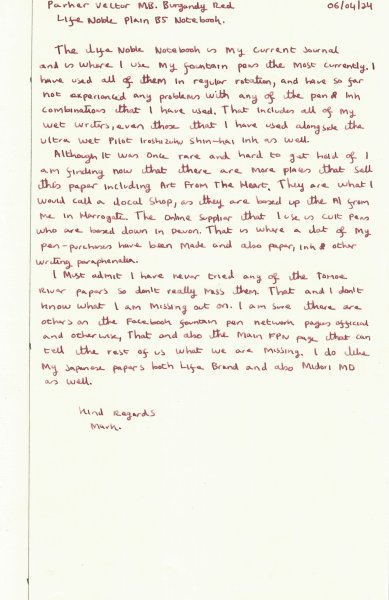 Parker Vector MB. Burgandy Red 06/04/24
Life Noble Plain B5 Notebook.
The Life Noble Notebook is my current Journal
and is where I use my fountain pens the most currently. I
have used all of them in regular rotation, and have so far
not experienced any problems with any of the pen & Ink
combinations that I have used. That includes all of my
wet writers, even those that I have used alongside the
ultra wet Pilot Iroshizuku Shin-kai ink as well.
Although it was once rare and hard to get hold of I
am finding now that there are more places that sell
this paper including Art From The Heart. They are what I
would call a local shop, as they are based up the A1 from
me in Harrogate. The online supplier that I use is Cult Pens
who are based down in Devon. That is where a lot of my
pen-purchases have been made and also paper, ink & other
writing paraphenalia.
I must admit I have never tried any of the Tomoe
River papers so don't really miss them. That and I don't
know what I am missing out on. I am sure there are
others on the Facebook fountain pen network pages official
and otherwise, That and also the main FPN page that can
tell the rest of us what we are missing. I do like
my Japanese papers both Life Brand and also Midori MD
as well.
Kind Regards
Mark.